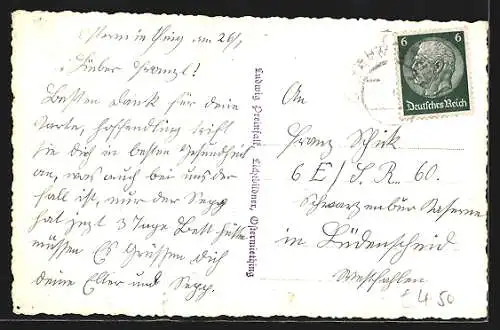 Ostermiething am 26/1
Lieber Franzl!
Besten Dank für deine
Karte, hoffendling trift
Sie dich in besten Gesundheit
an, was auch bei uns der
fall ist, nur der Sepp
hat jezt 3 Tage Bett hüten
müssen Es Grüssen dich
deine Elter und Sepp.
Ludwig Preinfalk, Lichtbildner, Ostermiething
6 6
Deutsches Reich
An
Franz Schick
6 E / J. R. 60.
Schwarzenbur Kaserne
in Lüdenscheid
Westfahlen
£ 4 50